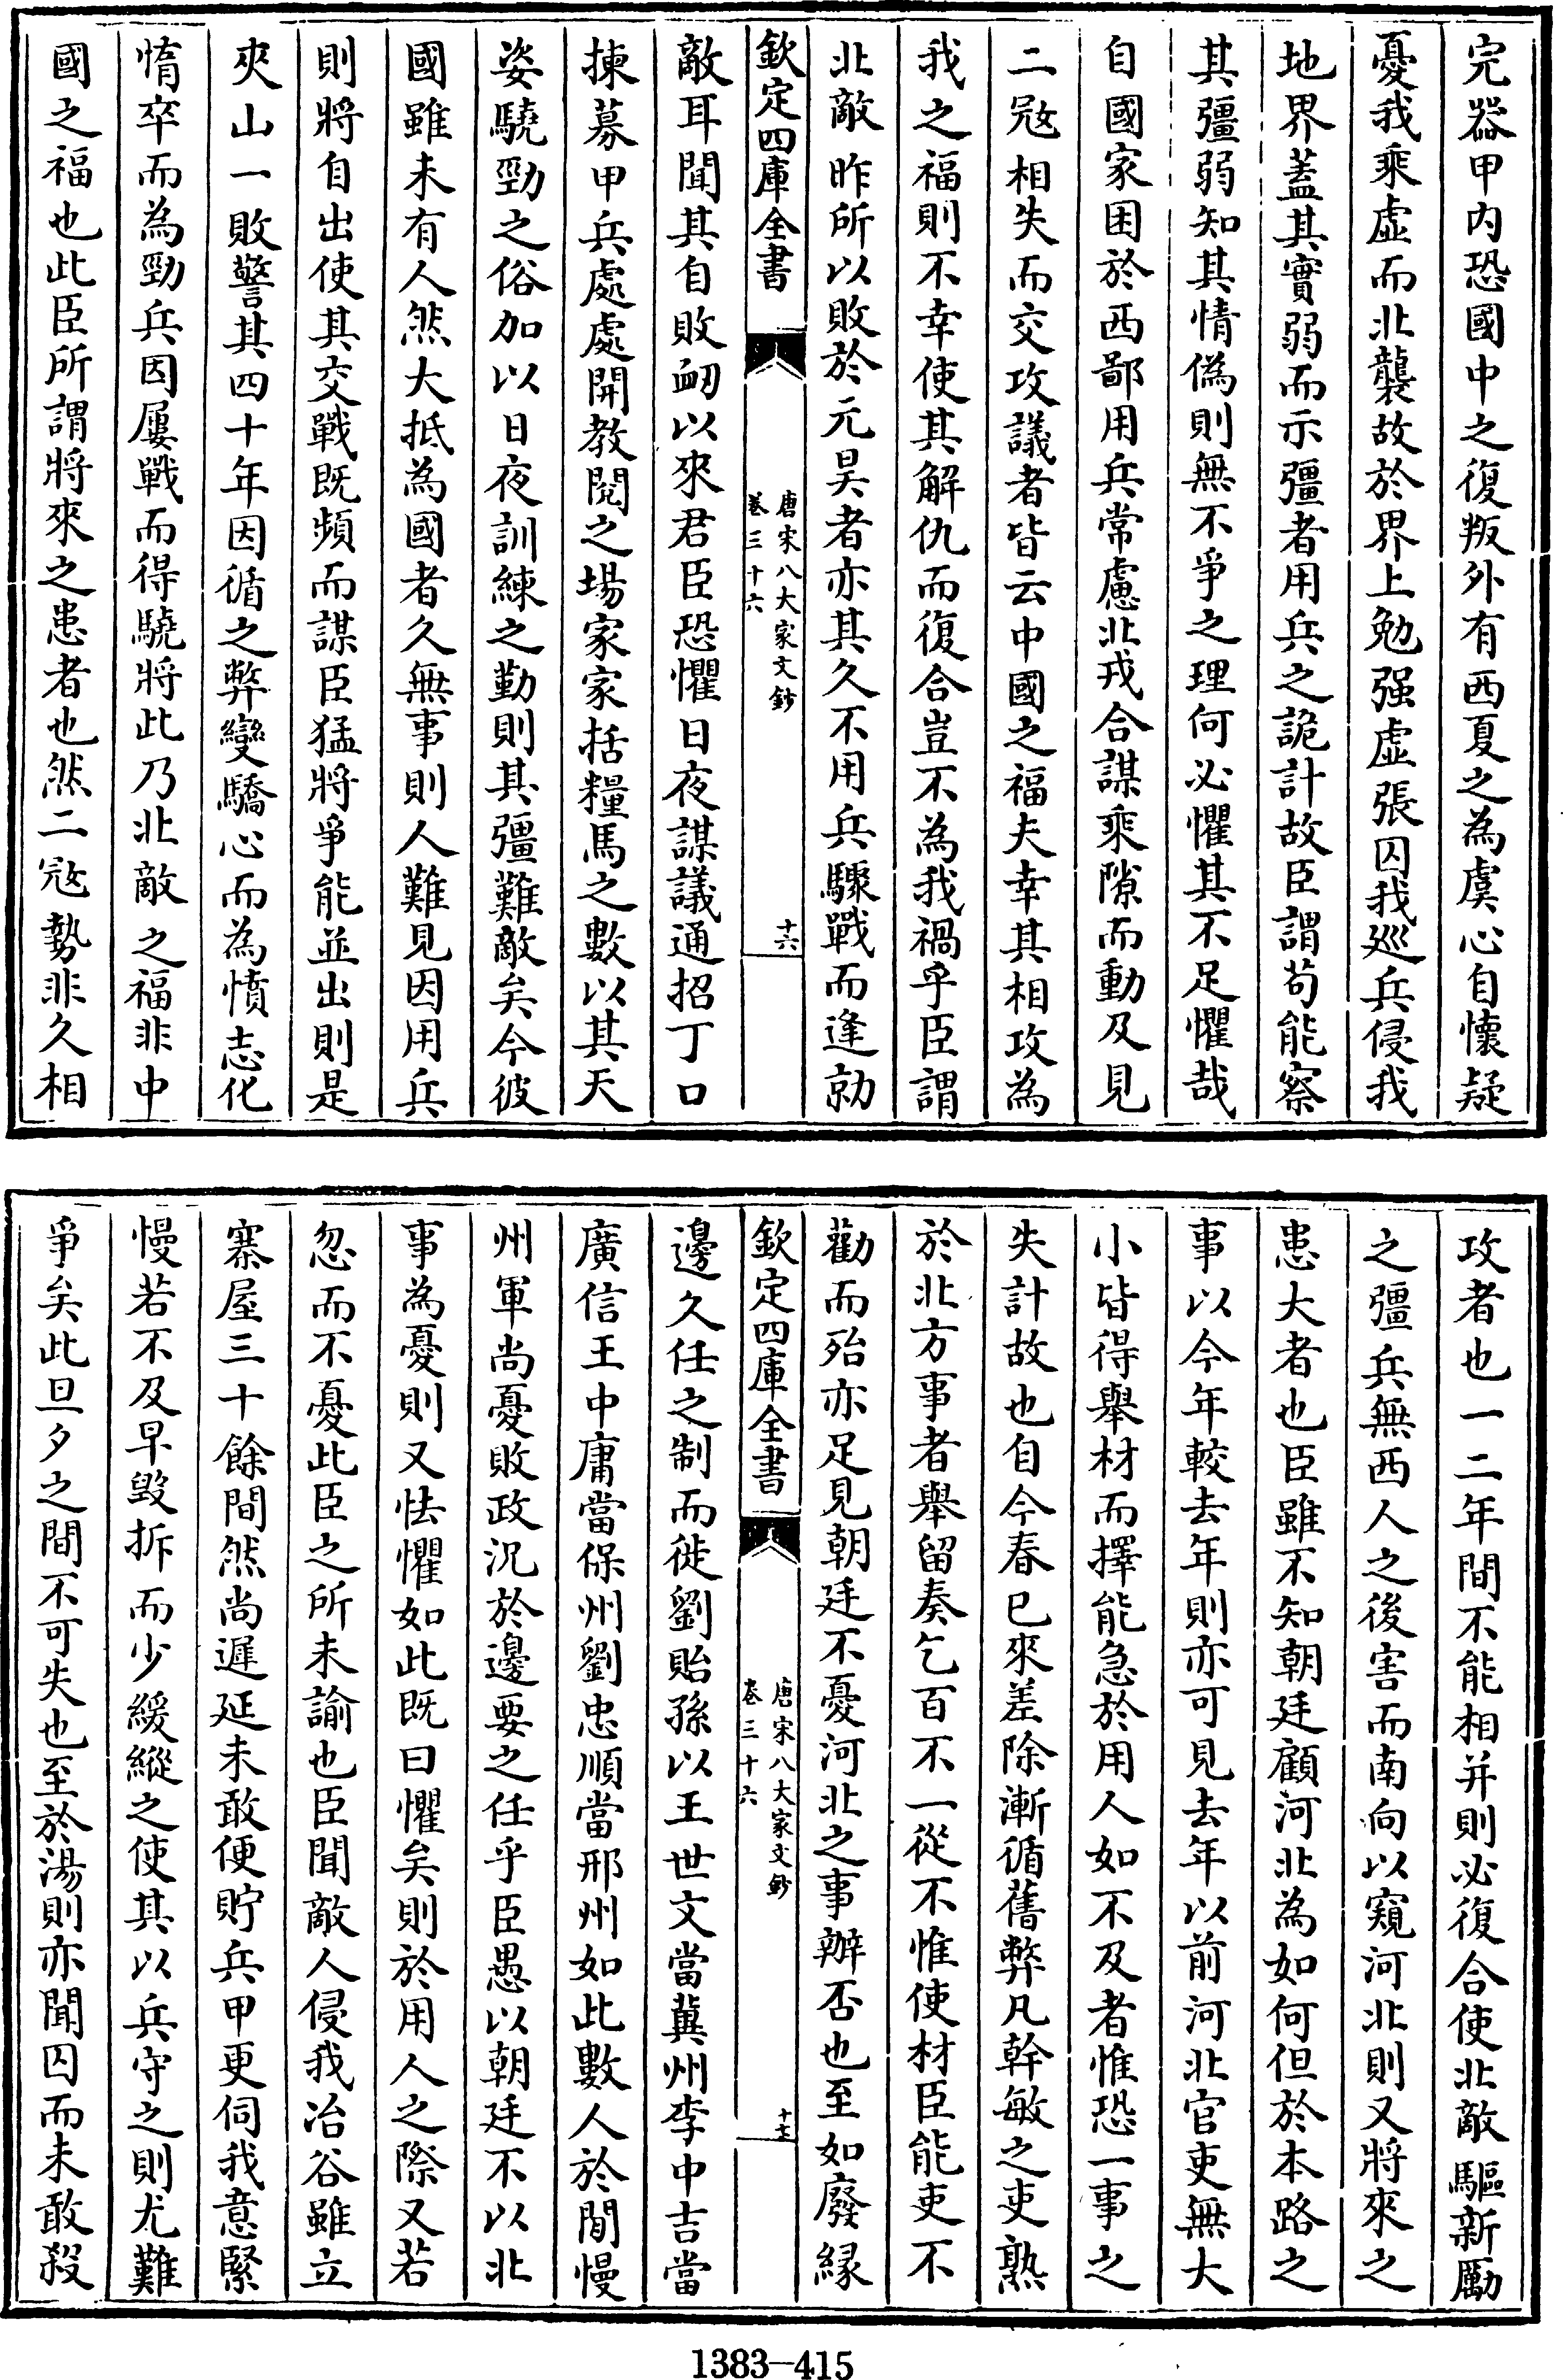 完器甲内恐國中之復叛外有西夏之為虞心自懷疑
憂我乘虚而北襲故於界上勉强虚張囚我巡兵侵我
地界蓋其實弱而示彊者用兵之詭計故臣謂苟能察
其彊弱知其情偽則無不爭之理何必懼其不足懼哉
自國家困於西鄙用兵常慮北戎合謀乘隙而動及見
二㓂相失而交攻議者皆云中國之福夫幸其相攻為
我之福則不幸使其解仇而復合豈不為我禍乎臣謂
北敵昨所以敗於元昊者亦其久不用兵驟戰而逢勍
欽定四庫全書
唐宋八大家文鈔
卷三十六
十六
敵耳聞其自敗衂以來君臣恐懼日夜謀議通招丁口
揀募甲兵處處開教閱之場家家括糧馬之數以其天
姿驍勁之俗加以日夜訓練之勤則其彊難敵矣今彼
國雖未有人然大抵為國者久無事則人難見因用兵
則將自出使其交戰既頻而謀臣猛將爭能並出則是
夾山一敗警其四十年因循之弊變驕心而為憤志化
惰卒而為勁兵因屢戰而得驍將此乃北敵之福非中
國之福也此臣所謂將來之患者也然二㓂勢非久相
攻者也一二年間不能相并則必復合使北敵驅新勵
之彊兵無西人之後害而南向以窺河北則又將來之
患大者也臣雖不知朝廷顧河北為如何但於本路之
事以今年較去年則亦可見去年以前河北官吏無大
小皆得舉材而擇能急於用人如不及者惟恐一事之
失計故也自今春已來差除漸循舊弊凡幹敏之吏熟
於北方事者舉留奏乞百不一從不惟使材臣能吏不
勸而殆亦足見朝廷不憂河北之事辦否也至如廢緣
欽定四庫全書
唐宋八大家文鈔
卷三十六
十七
邊久任之制而徙劉貽孫以王世文當冀州李中吉當
廣信王中庸當保州劉忠順當邢州如此數人於閒慢
州軍尚憂敗政況於邊要之任乎臣愚以朝廷不以北
事為憂則又怯懼如此既曰懼矣則於用人之際又若
忽而不憂此臣之所未諭也臣聞敵人侵我冶谷雖立
寨屋三十餘間然尚遲延未敢便貯兵甲更伺我意緊
慢若不及早毀拆而少緩縱之使其以兵守之則尤難
爭矣此旦夕之間不可失也至於湯則亦聞囚而未敢殺
1383—415